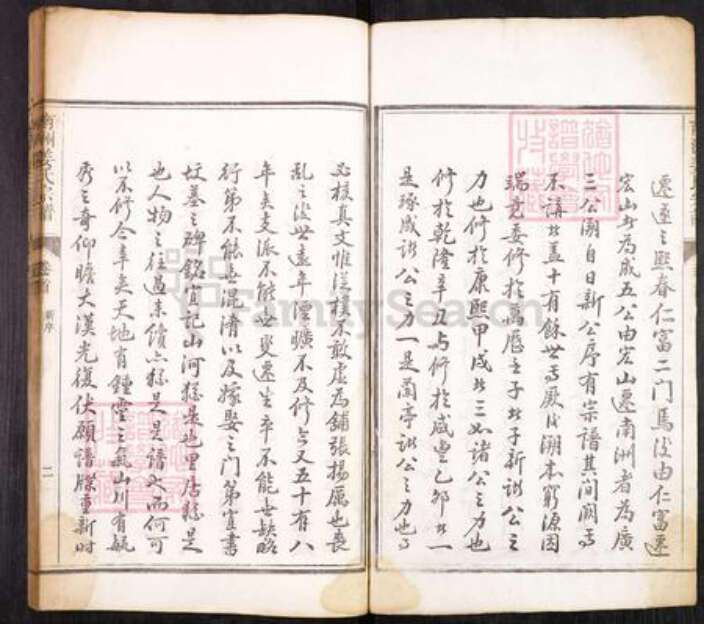 遷遂之熙春仁富二門馬沒由仁富遷
宏山者為成五公由宏山遷南洲者為廣
三公溯自日新公序有宗譜其間闕焉
不講者蓋十有餘世焉厥後溯本窮源因
端竟委修於萬曆壬子者子新諸公之
力也修於康熙甲戌者三如諸公之力也
修於乾隆辛丑與修於咸豐己卯者一
是琢成諸公之力一是蘭亭諸公之力也焉
必核真文惟從樸不敢虛為鋪張揚厲也喪
亂之後世遠年湮曠不及修今又五十有八
年矣支派不能世叟遷生卒不能世缺略
行第不能無混淆以及嫁娶之門第宜書
墳墓之碑銘宜記山河猶是也里居猶是
也人物之往過來續亦猶是是譜又而何可
以不修今幸矣天地有鍾靈之氣山川有毓
秀之奇仰瞻大漢光復伏願譜牒重新時
南洲姜氏宗譜
卷首
新序
二
FamilySearch